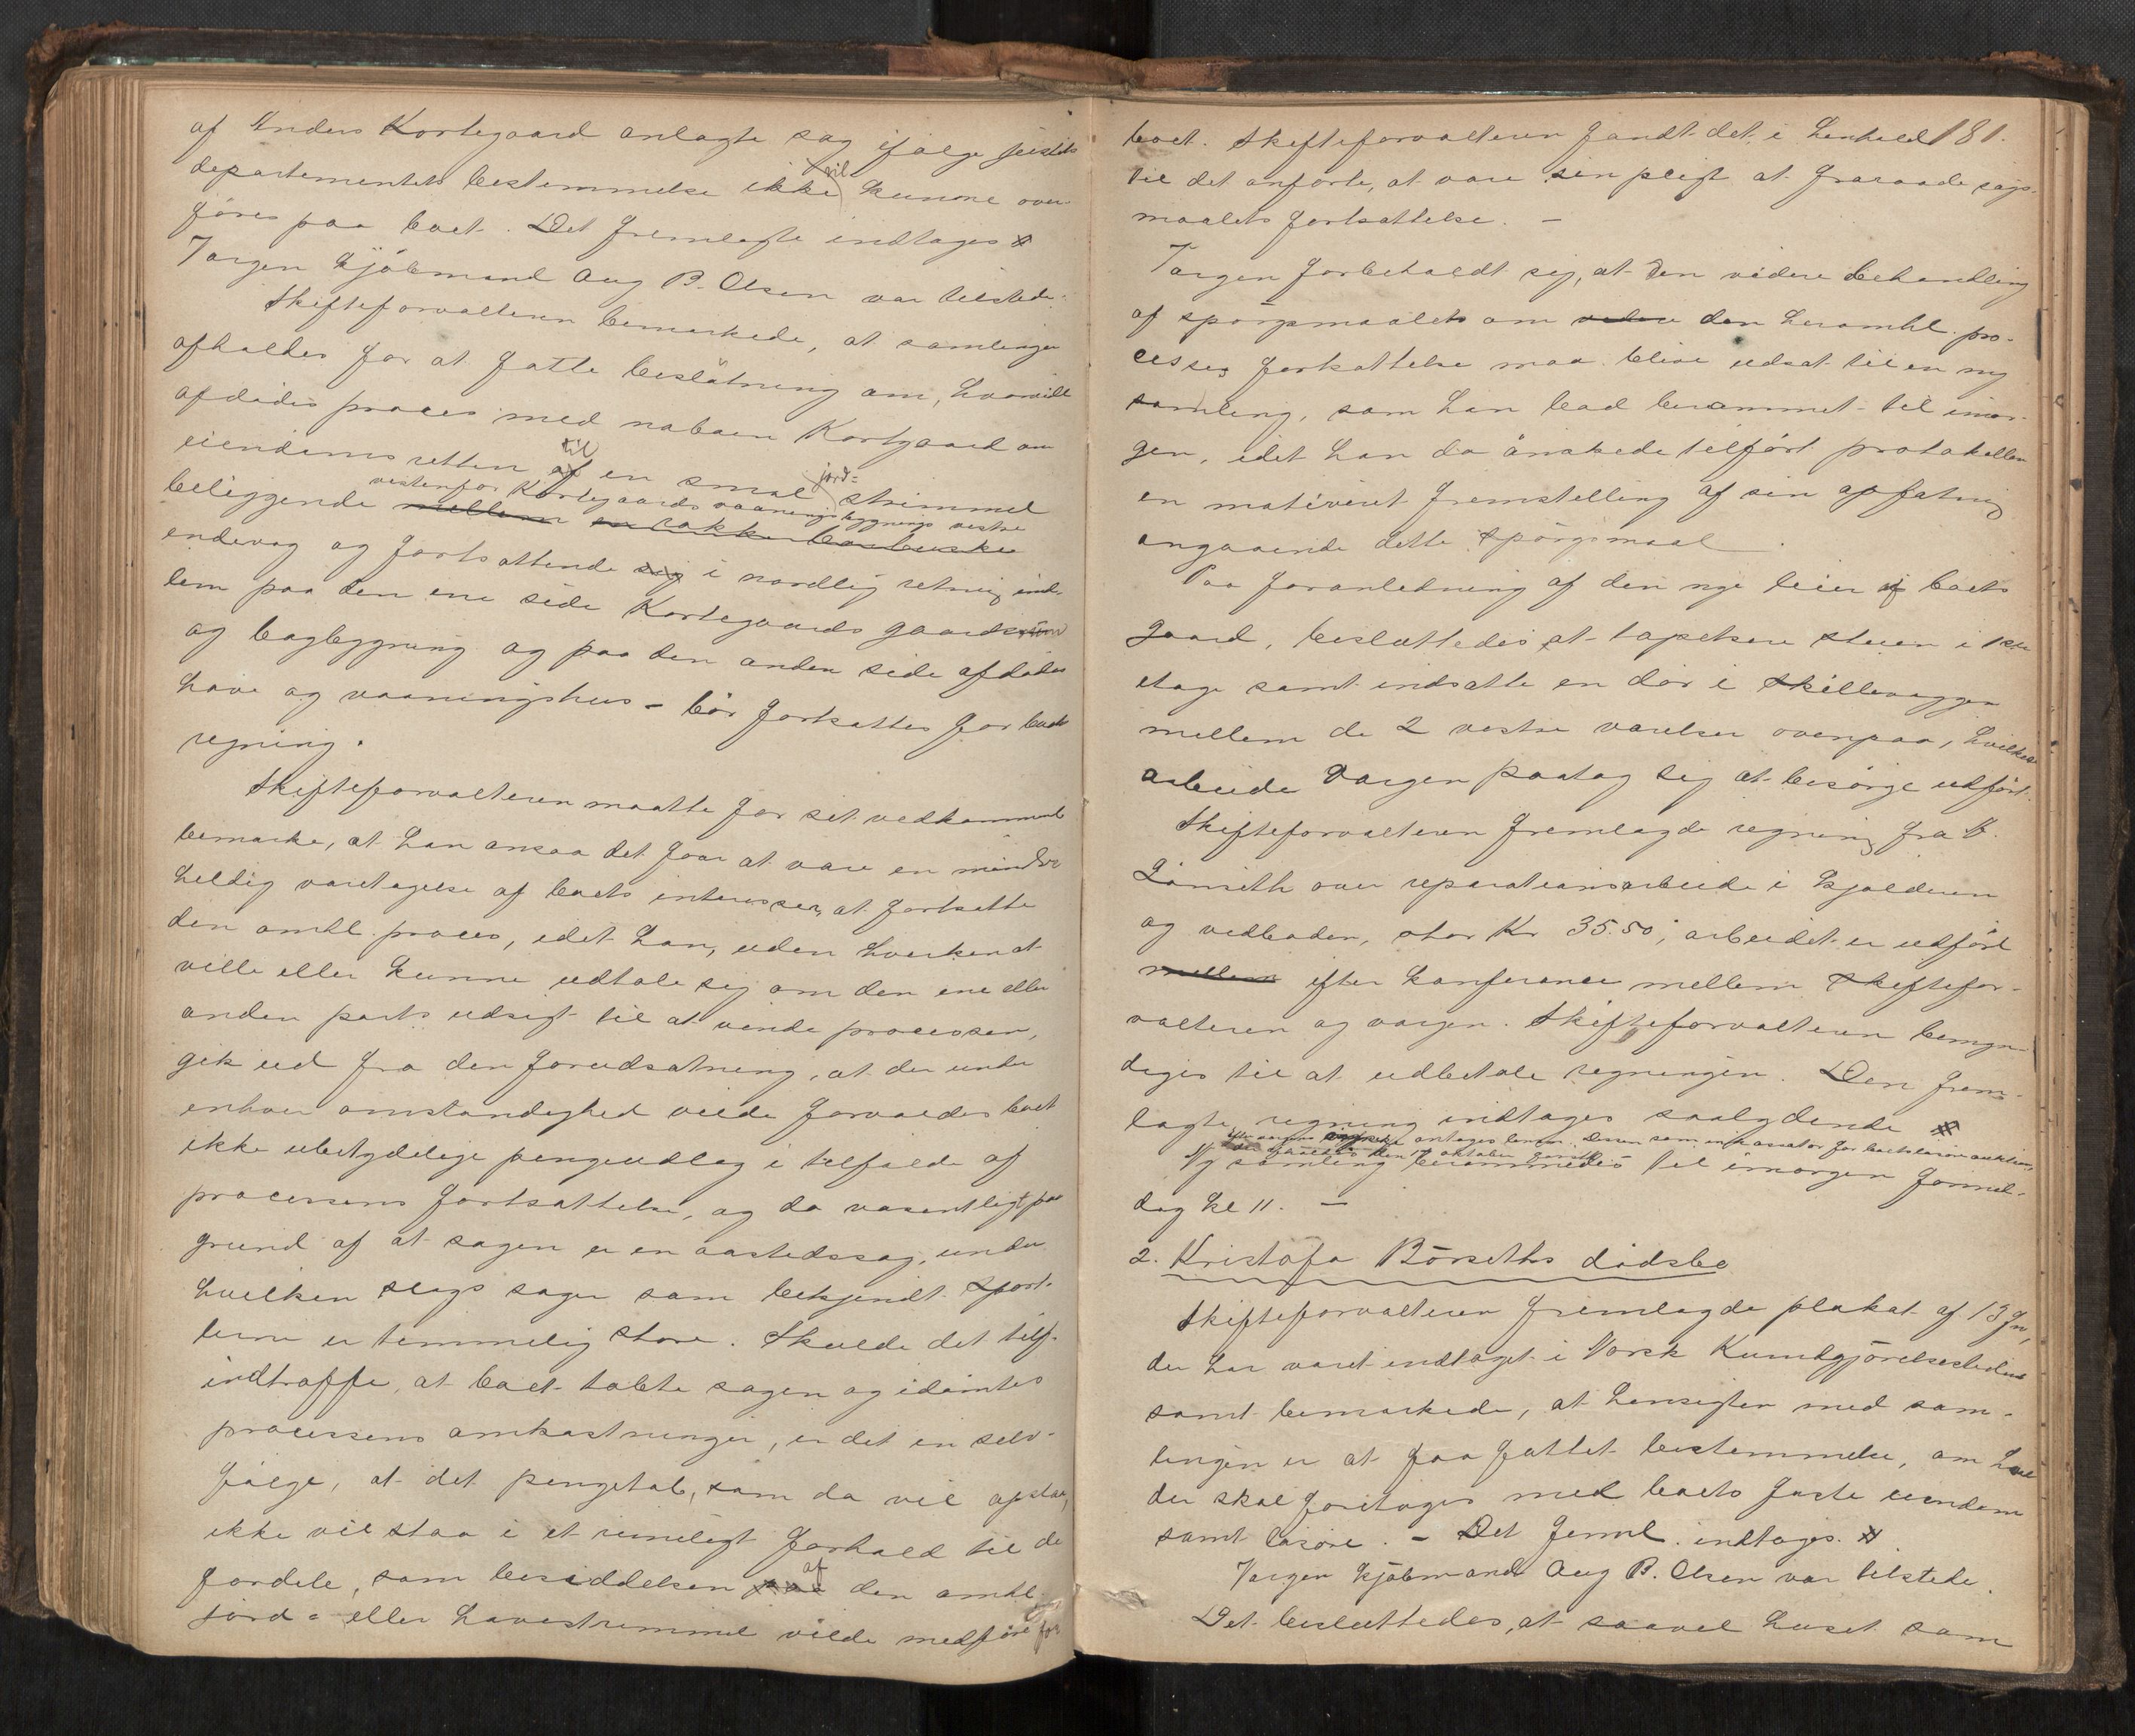 af Anders Kortegaard anlagte sag ifølge justits
departementets bestemmelse ikke vil kunne over-
føres paa boet. Det fremlagte indtages #
Værgen kjøbmand Aug B. Olsen var tilstede.
Skifteforvalteren bemærkede, at samlingen
afholdes for at fatte beslutning om, hvorvidt
afdødes proces med naboen Kortgaard om
eiendomsretten til en smal jord-strimmel
beliggende vestenfor Kortegaards vaaningsbygnings vestre
mellem en række bærbuske
endevæg og fortsættende sig i nordlig retning imel-
lem paa den ene side Kortegaards gaards
og bagbygning og paa den anden side afdødes
have og vaaningshus - bør fortsættes for boets
regning.
Skifteforvalteren maatte for sit vedkommende
bemærke, at han ansaa det for at være en mindre
heldig varetagelse af boets interesser, at fortsætte
den omhl. proces, idet han, uden hverken at
ville eller kunne udtale sig om den ene eller
anden parts udsigt til at vinde processen,
gik ud fra den forudsætning, at der under
enhver omstændighed vilde forvoldes boet
ikke ubetydelige pengeudlæg i tilfælde af
processens fortsættelse, og da væsentligt paa
grund af at sagen er en aastedssag, under
hvilken slags sager som bekjendt sport-
lerne er temmelig store. Skulde det tilf.
indtræffe, at boet tabte sagen og idømtes
processens omkostninger, er det en selv-
følge, at det pengetab, som da vil opstaa,
ikke vil staa i et rimeligt forhold til de
fordele, som besiddelsen af den omhl.
jord- eller havestrimmel vilde medføre for
181.
boet. Skifteforvalteren fandt det i henhold
til det anførte, at være sin pligt at fraraade søgs-
maalets fortsættelse. -
Værgen forbeholdt sig, at den videre behandling
af spørgsmaalet om den heromhl. pro-
cesses fortsættelse maa blive udsat til en ny
samling, som han bad berammet til imor-
gen, idet han da ønskede tilført protokollen
en motiveret fremstilling af sin opfatning
angaaende dette spørgsmaal.
Paa foranledning af den nye leier af boets
gaard, besluttedes at tapetsere stuen i 1ste
etage samt indsætte en dør i skillevæggen
mellem de 2 vestre værelser ovenpaa, hvilket
arbeide værgen paatog sig at besørge udført.
Skifteforvalteren fremlagde regning fra
Lönseth over reparationsarbeide i kjælderen
og vedboden, stor Kr 35.50; arbeidet er udført
mellem efter konferance mellem skiftefor-
valteren og værgen. Skifteforvalteren bemyn-
diges til at udbetale regningen. Den frem-
lagte regning indtages saalydende #
Efter værgens antages lensm. Dessen som inkassator for boets løsøreauktion,
der afholdtes den 17 oktober
Ny samling berammedes til imorgen formid-
dag kl 11. -
2. Kristofa Börseths dødsbo
Skifteforvalteren fremlagde plakat af 13 ,
der har været indtaget i Norsk Kundgjörelsestidende
samt bemærkede, at hensigten med sam-
lingen er at faa fattet bestemmelse, om hvad
der skal foretages med boets faste eiendom
samt løsøre. - Det freml. indtages. #
Værgen kjøbmand Aug B. Olsen var tilstede.
Det besluttedes, at saavel huset som